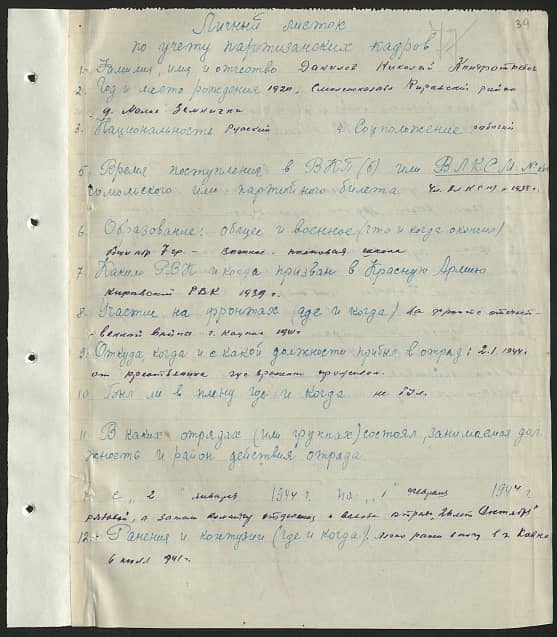 39
Личный листок
по учету партизанских кадров
1. Фамилия, имя и отчество Данилов Николай
2. Год и место рождения 1920, Кировский район
д. Малая
3. Национальность Русский 4. Соцположение рабочий
5. Время поступления в ВКП(б) или ВЛКСМ. №
сомольского или партийного билета
6. Образование: общее и военное (что и когда окончил)
7 гр. - военное - полковая школа
7. Каким РВК и когда призван в Красную Армию
Кировский РВК 1939 г.
8. Участие на фронтах (где и когда) На фронте отечест-
венной войны с начала 1941 г.
9. Откуда, когда и с какой должности прибыл в отряд: 2.1.1944 г.
от где временно
10. Был ли в плену где и когда не был.
11. В каких отрядах (или группах) состоял, занимаемая дол
жность и район действия отряда
с "2" января 1944 г. по "1" февраля 1944 г.
рядовой, а затем отделения
12. Ранения и контузии (где и когда). легко ранен в ногу в г.
6 июля 1941 г.